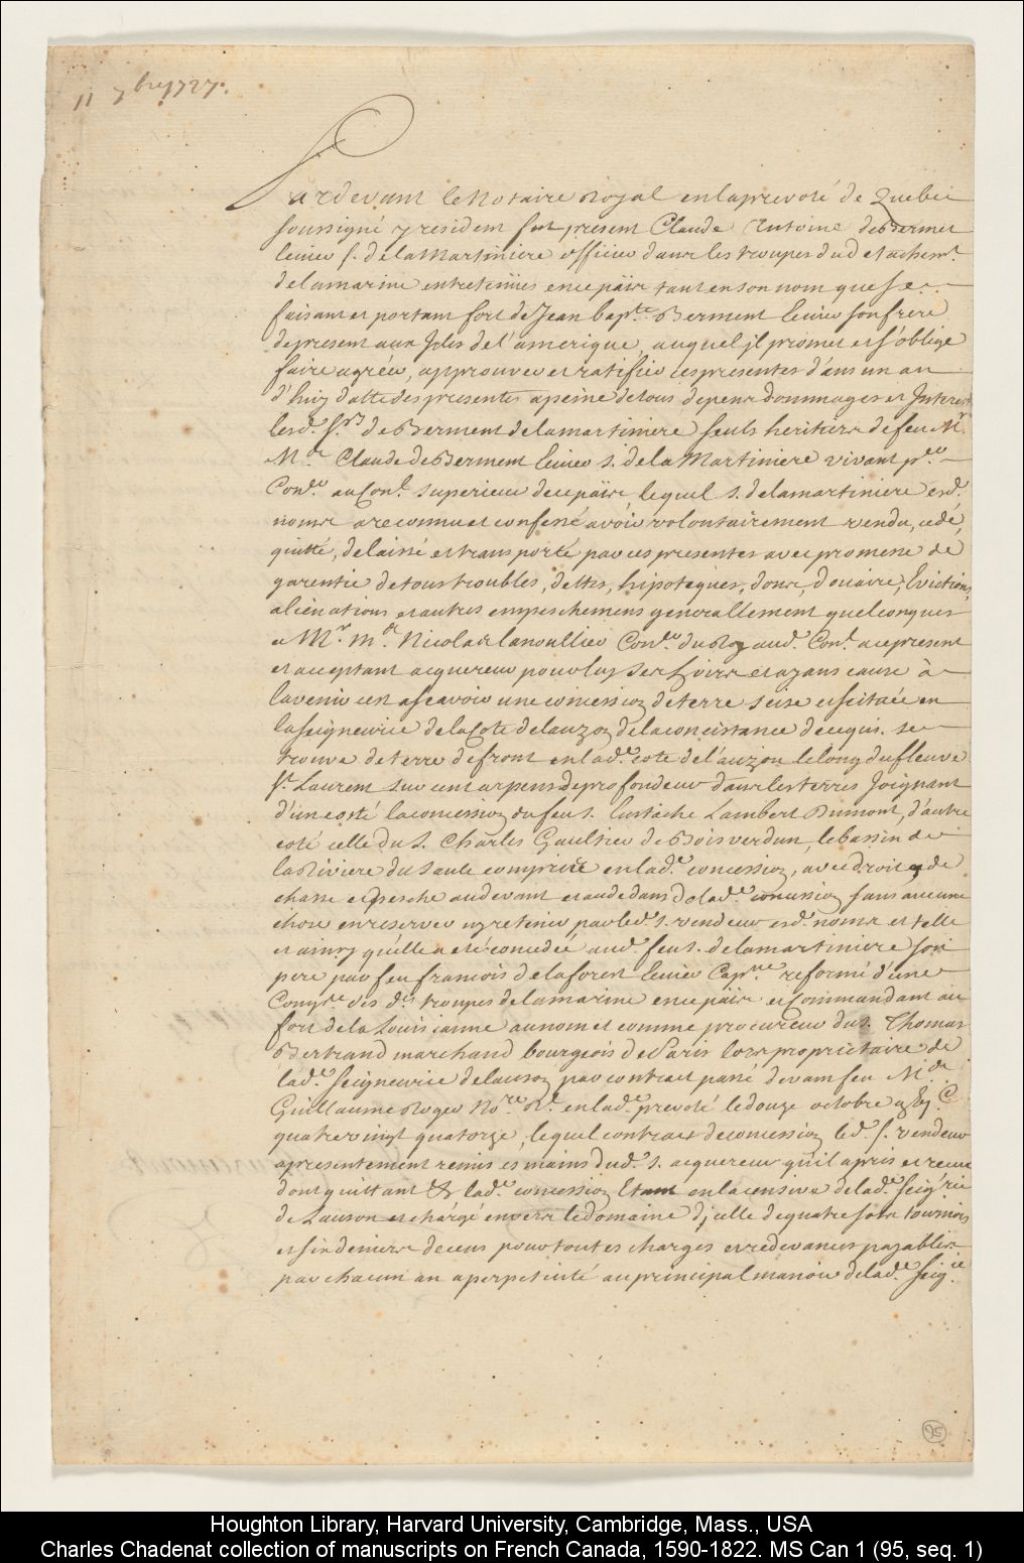 11 7bre 1727.
Pardevant le Notaire Royal en la prevoté de Quebec
soussigné y resident fut present Claude Antoine de Berment
Ecuier s. de la Martiniere officier dans les troupes du detachemt.
de la marine entretenües en ce païs tant en son nom que se
faisant et portant fort de Jean bapte. Berment Ecuier son frere
de present aux Isles de l'amerique, auquel jl promet et s'oblige
faire agréer, approuver et ratifier ces presentes d'ans un an
d'huy datte des presentes a peine de tous depens dommages et Interest
lesd. srs de Berment de la martiniere seuls heritiers de feu Mr.
Me. Claude de Berment Ecuier s. de la Martiniere vivant pr.
Coner au Conl. superieur de ce païs, lequel s. de la martiniere esd.
noms a reconnu et confessé avoir volontairement vendu, cedé,
quitté, delaissé et transporté par ces presentes avec promesse de
garentie de tous troubles, dettes, hipoteques, dons, douaire, Evictions,
alienations et autres empeschemens generallement quelconques
a Mr. me. Nicolas lanoullier Coner. du Roy aud. Conl. a ce present
et acceptant acquereur pour luy ses hoirs et ayans cause à
l'avenir cest ascavoir une concession de terre scise et scituée en
la seigneurie de la Cote de lauzon de la consistance de ce qui se
trouve de terre de front en lade. cote de l'auzon le long du fleuve
st. Laurent sur cent arpens de profondeur dans les terres Joignant
d'un costé la concession du feu s. Eustache Lambert Dumont, d'autre
coté celle du s. Charles Gaultier de Boisverdun, le bassin de
la Riviere du Saule comprise en lade. concession, avec droit de
chasse et pesche au devant et au dedans de lade. concession sans aucune
chose en reserver ny retenir par led. s. vendeur esd. noms et telle
et ainsy qu'elle a eté concedée aud. feu s. de la martiniere son
pere par feu francois de la forest Ecuier Capne reformé d'une
Compie des d. troupes de la marine en ce païs et Commandant au
fort de la Louisianne au nom et comme procureur du s. Thomas
Bertrand marchand bourgeois de Paris lors proprietaire de
lade. seigneurie de lauson par contract passé devant feu Me
Guillaume Roger Nore. Rl. en lade. prevoté le douze octobre C
quatre vingt quatorze, lequel contract de concession led. s. vendeur
a presentement remis es mains dud. s. acquereur qu'il a pris et receu
dont quittant &. lade. concession Etant en la censive de lade. seig'rie
de Lauson et chargé envers le domaine d'jcelle de quatre sols tournois
et six deniers de cens pour toutes charges et redevances payables
par chacun an a perpetuité au principal manoir de lade. seigie.
95
Houghton Library, Harvard University, Cambridge, Mass., USA
Charles Chadenat collection of manuscripts on French Canada, 1590-1822. MS Can 1 (95, seq. 1)